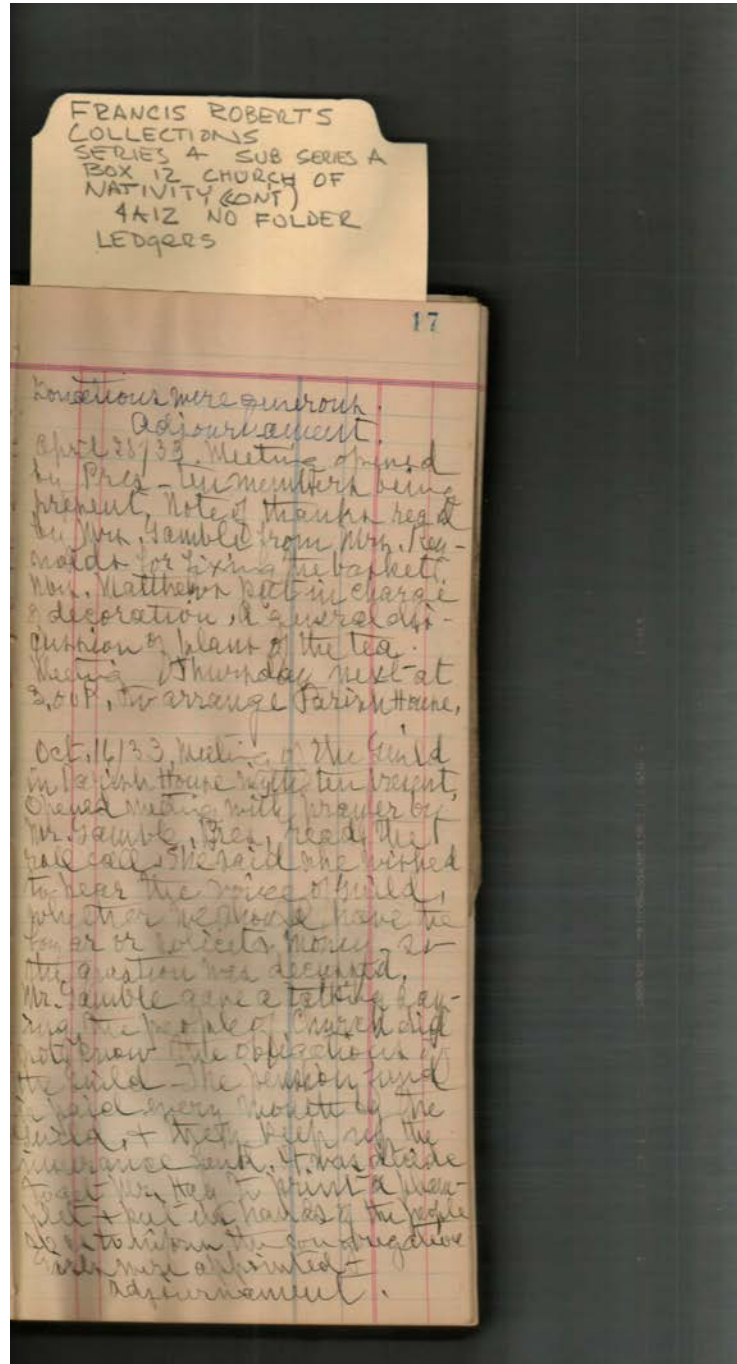 FRANCIS ROBERTS
COLLECTIONS
SERIES 4 SUB SERIES A
BOX 12 CHURCH OF
NATIVITY (CONT)
4A12 NO FOLDER
LEDGERS
17
Donations were generous.
Adjournament.
April 28/33, Meeting opened
by Pres – ten members being
present, Note of thanks read
by Mrs. Gamble from Mrs. Rey-
nolds for fixing the baskets.
Matthews put in charge
of decoration, A general dis-
cussion of plans of the tea.
Meeting Thursday next at
3,00 P, to arrange Parish House,
Oct, 16/33, Meeting of the Guild
in Parish House ten present,
Opened meeting with prayer by
Mr. Gamble, Pres, read the
role call, She said she wished
to hear the voice of Guild,
whether we should have the
or money – so
the question was
Mr. Gamble gave a talking say-
ing the people of Church did
not know the obligations of
the Guild – The pension fund
is paid every month by the
Guild, + they keep up the
insurance . It was decide
to get Mr. Hay to print a pham-
plet + put in hands of the people
so as to inform the congregation
were appointed –
Adjournament.